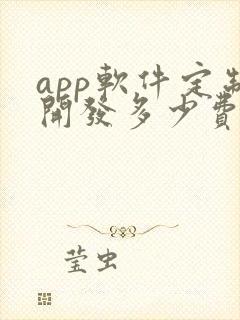 app軟件定制
開發多少費
莹虫